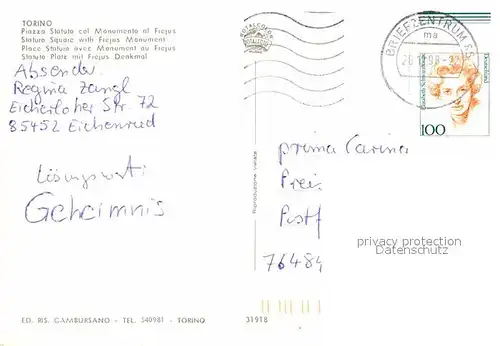 TORINO
Piazza Statuto col Monumento al Frejus
Statuto Square with Frejus Monument
Place Statuto avec Monument au Frejus
Statuto Platz mit Frejus Denkmal
Absender
Regina Zangl
Eicherloher Str. 72
85452 Eichenried
Lösungswort:
Geheimnis
ED. RIS. GAMBURSANO - TEL. 540981 - TORINO
Riproduzione vietata
31918
BRIEFZENTRUM 85
ma
Deutschland
100
prima Carina
Preis
Postf
76484
privacy protection
Datenschutz